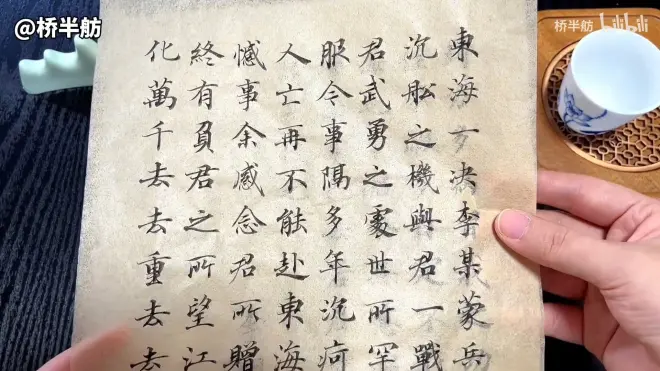 @桥半舫
桥半舫 bilibili
東海一决李某蒙兵
沉舩之機與君一戰
君武勇之處世所罕
服今事隔多年沉疴
人亡再不能赴東海
憾事余感念君所贈
終有負君之所望江
化萬千去去重去去